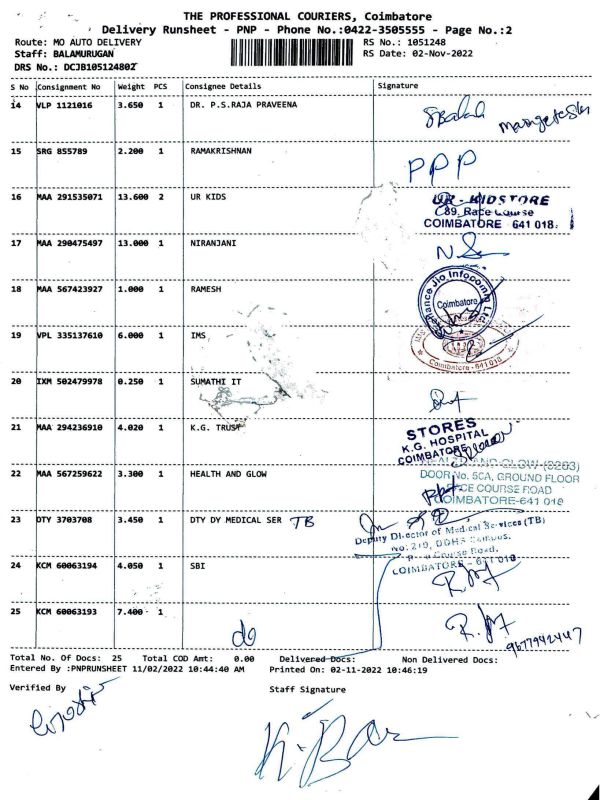 THE PROFESSIONAL COURIERS, Coimbatore
Delivery Runsheet - PNP - Phone No.:0422-3505555 - Page No.:2
Route: MO AUTO DELIVERY RS No.: 1051248
Staff: BALAMURUGAN RS Date: 02-Nov-2022
DRS No.: DCJB1051248O2
S No Consignment No Weight PCS Consignee Details Signature
14 VLP 1121016 3.650 1 DR. P.S.RAJA PRAVEENA
15 SRG 855789 2.200 1 RAMAKRISHNAN PPP
16 MAA 291535071 13.600 2 UR KIDS UR - KIDSTORE
89, Race Course
COIMBATORE 641 018.
17 MAA 290475497 13.000 1 NIRANJANI
18 MAA 567423927 1.000 1 RAMESH Reliance Jio Infocomm Ltd
Coimbatore
19 VPL 335137610 6.000 1 IMS
Coimbatore - 641 018
20 IXM 502479978 0.250 1 SUMATHI IT
21 MAA 294236910 4.020 1 K.G. TRUST STORES
K.G. HOSPITAL
COIMBATORE
22 MAA 567259622 3.300 1 HEALTH AND GLOW HEALTH AND GLOW
DOOR No. 50A, GROUND FLOOR
RACE COURSE ROAD
COIMBATORE-641 018
23 DTY 3703708 3.450 1 DTY DY MEDICAL SER TB
Deputy Director of Medical Services (TB)
No: 219, DDHS Campus,
Race Course Road,
COIMBATORE - 641 018
24 KCM 60063194 4.050 1 SBI
25 KCM 60063193 7.400 1
do
9677942447
Total No. Of Docs: 25 Total COD Amt: 0.00 Delivered Docs: Non Delivered Docs:
Entered By :PNPRUNSHEET 11/02/2022 10:44:40 AM Printed On: 02-11-2022 10:46:19
Verified By Staff Signature